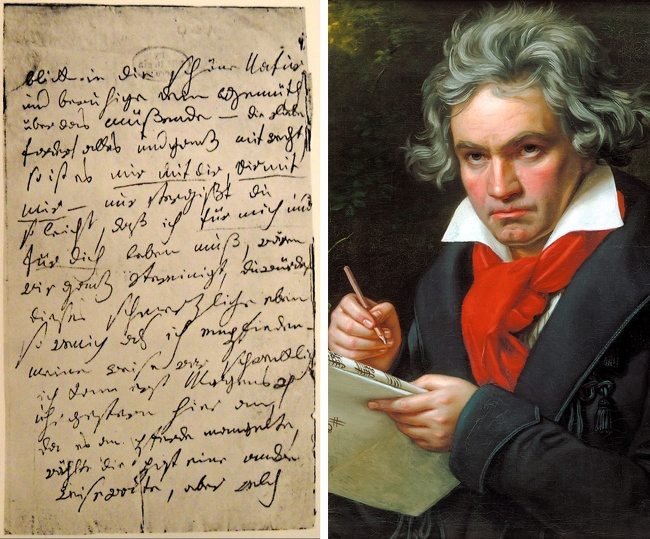 blick in die schöne Natur
und beruhige dein Gemüth
über das müßende — die Liebe
fordert alles und ganz mit recht
so ist es mir mit dir, dir mit
mir — nur vergißt du
so leicht, daß ich für mich und
für dich leben muß, wären
wir ganz vereinigt, du würdest
dieses schmerzliche eben
so wenig als ich empfinden —
meine Reise war schrecklich
ich kam erst Morgens 4
uhr gestern hier an,
da es an Pferde mangelte,
wählte die Post eine andre
Reiseroute, aber welch